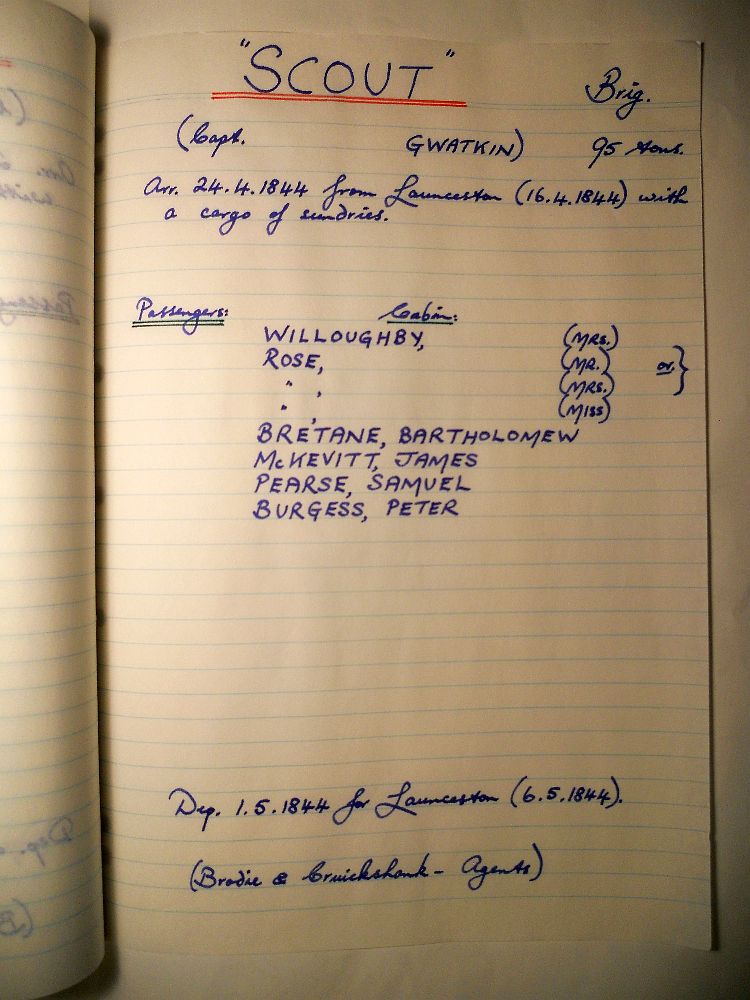 "SCOUT" Brig.
(Capt. GWATKIN) 95 tons.
Arr. 24.4.1844 from Launceston (16.4.1844) with
a cargo of sundries.
Passengers: Cabin:
WILLOUGHBY, (MRS.)
ROSE, (MR.) or }
" , (MRS.)
" , (MISS)
BRETANE, BARTHOLOMEW
McKEVITT, JAMES
PEARSE, SAMUEL
BURGESS, PETER
Dep. 1.5.1844 for Launceston (6.5.1844).
(Brodie & Cruickshank - Agents)